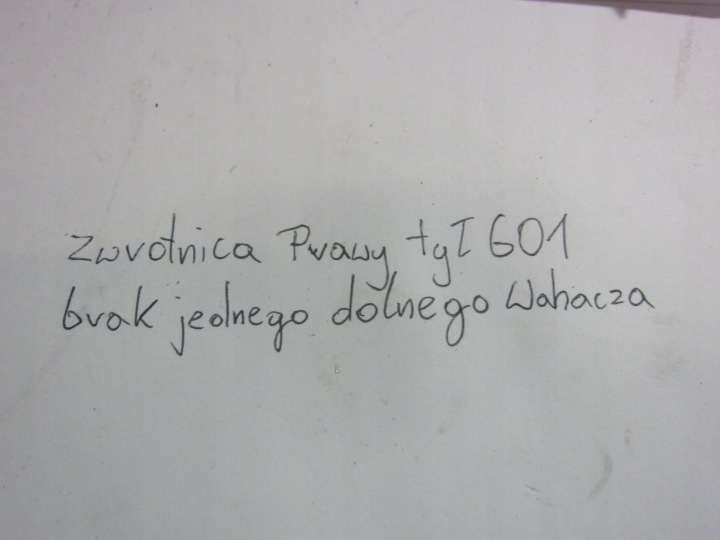 Zwrotnica Prawy tył 601
brak jednego dolnego Wahacza